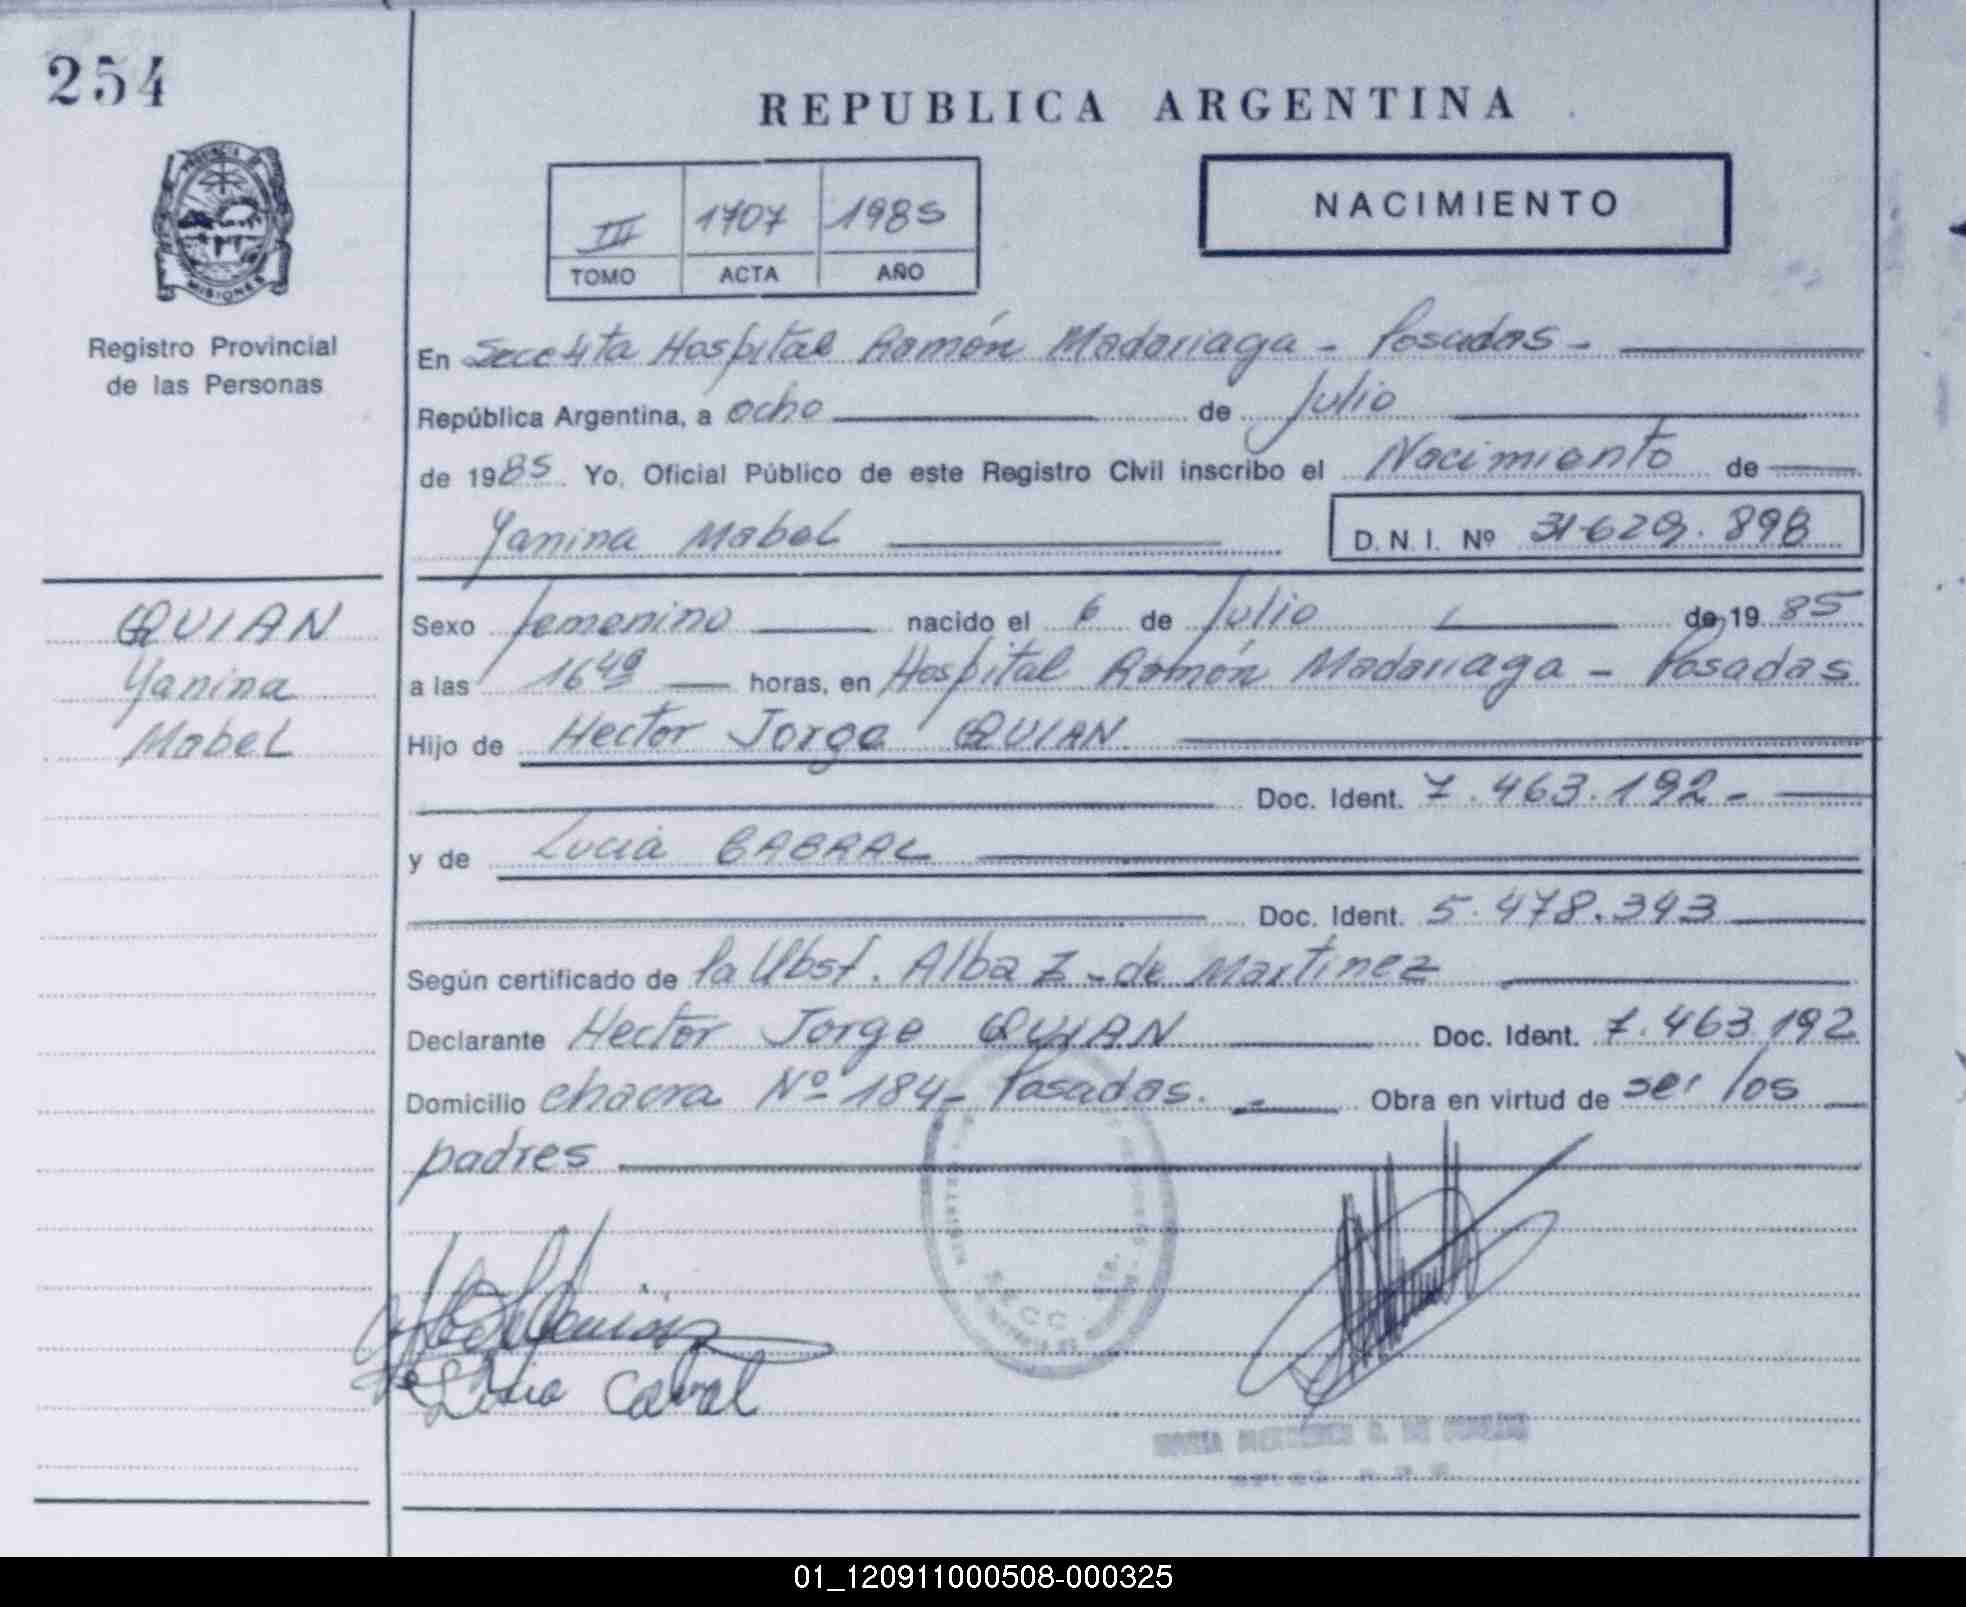 254
REPUBLICA ARGENTINA
PROVINCIA DE
MISIONES
III 1707 1985
TOMO ACTA AÑO
NACIMIENTO
Registro Provincial
de las Personas
En Hospital Ramón Madariaga - Posadas -
República Argentina, a ocho de Julio
de 1985 Yo, Oficial Público de este Registro Civil inscribo el Nacimiento de
Yanina Mabel D.N.I. Nº 31.629.898
QUIAN
Yanina
Mabel
Sexo femenino nacido el 6 de Julio de 1985
a las 16 49 horas, en Hospital Ramón Madariaga - Posadas
Hijo de Hector Jorge QUIAN
Doc. Ident. 7.463.192 -
y de Lucia CABRAL
Doc. Ident. 5.478.343
Según certificado de la Obst. Alba Z. de Martinez
Declarante Hector Jorge QUIAN Doc. Ident. 7.463.192
Domicilio chacra Nº 184 - Posadas. - Obra en virtud de ser los
padres
Cabral
MARIA MERCEDES
01_120911000508-000325